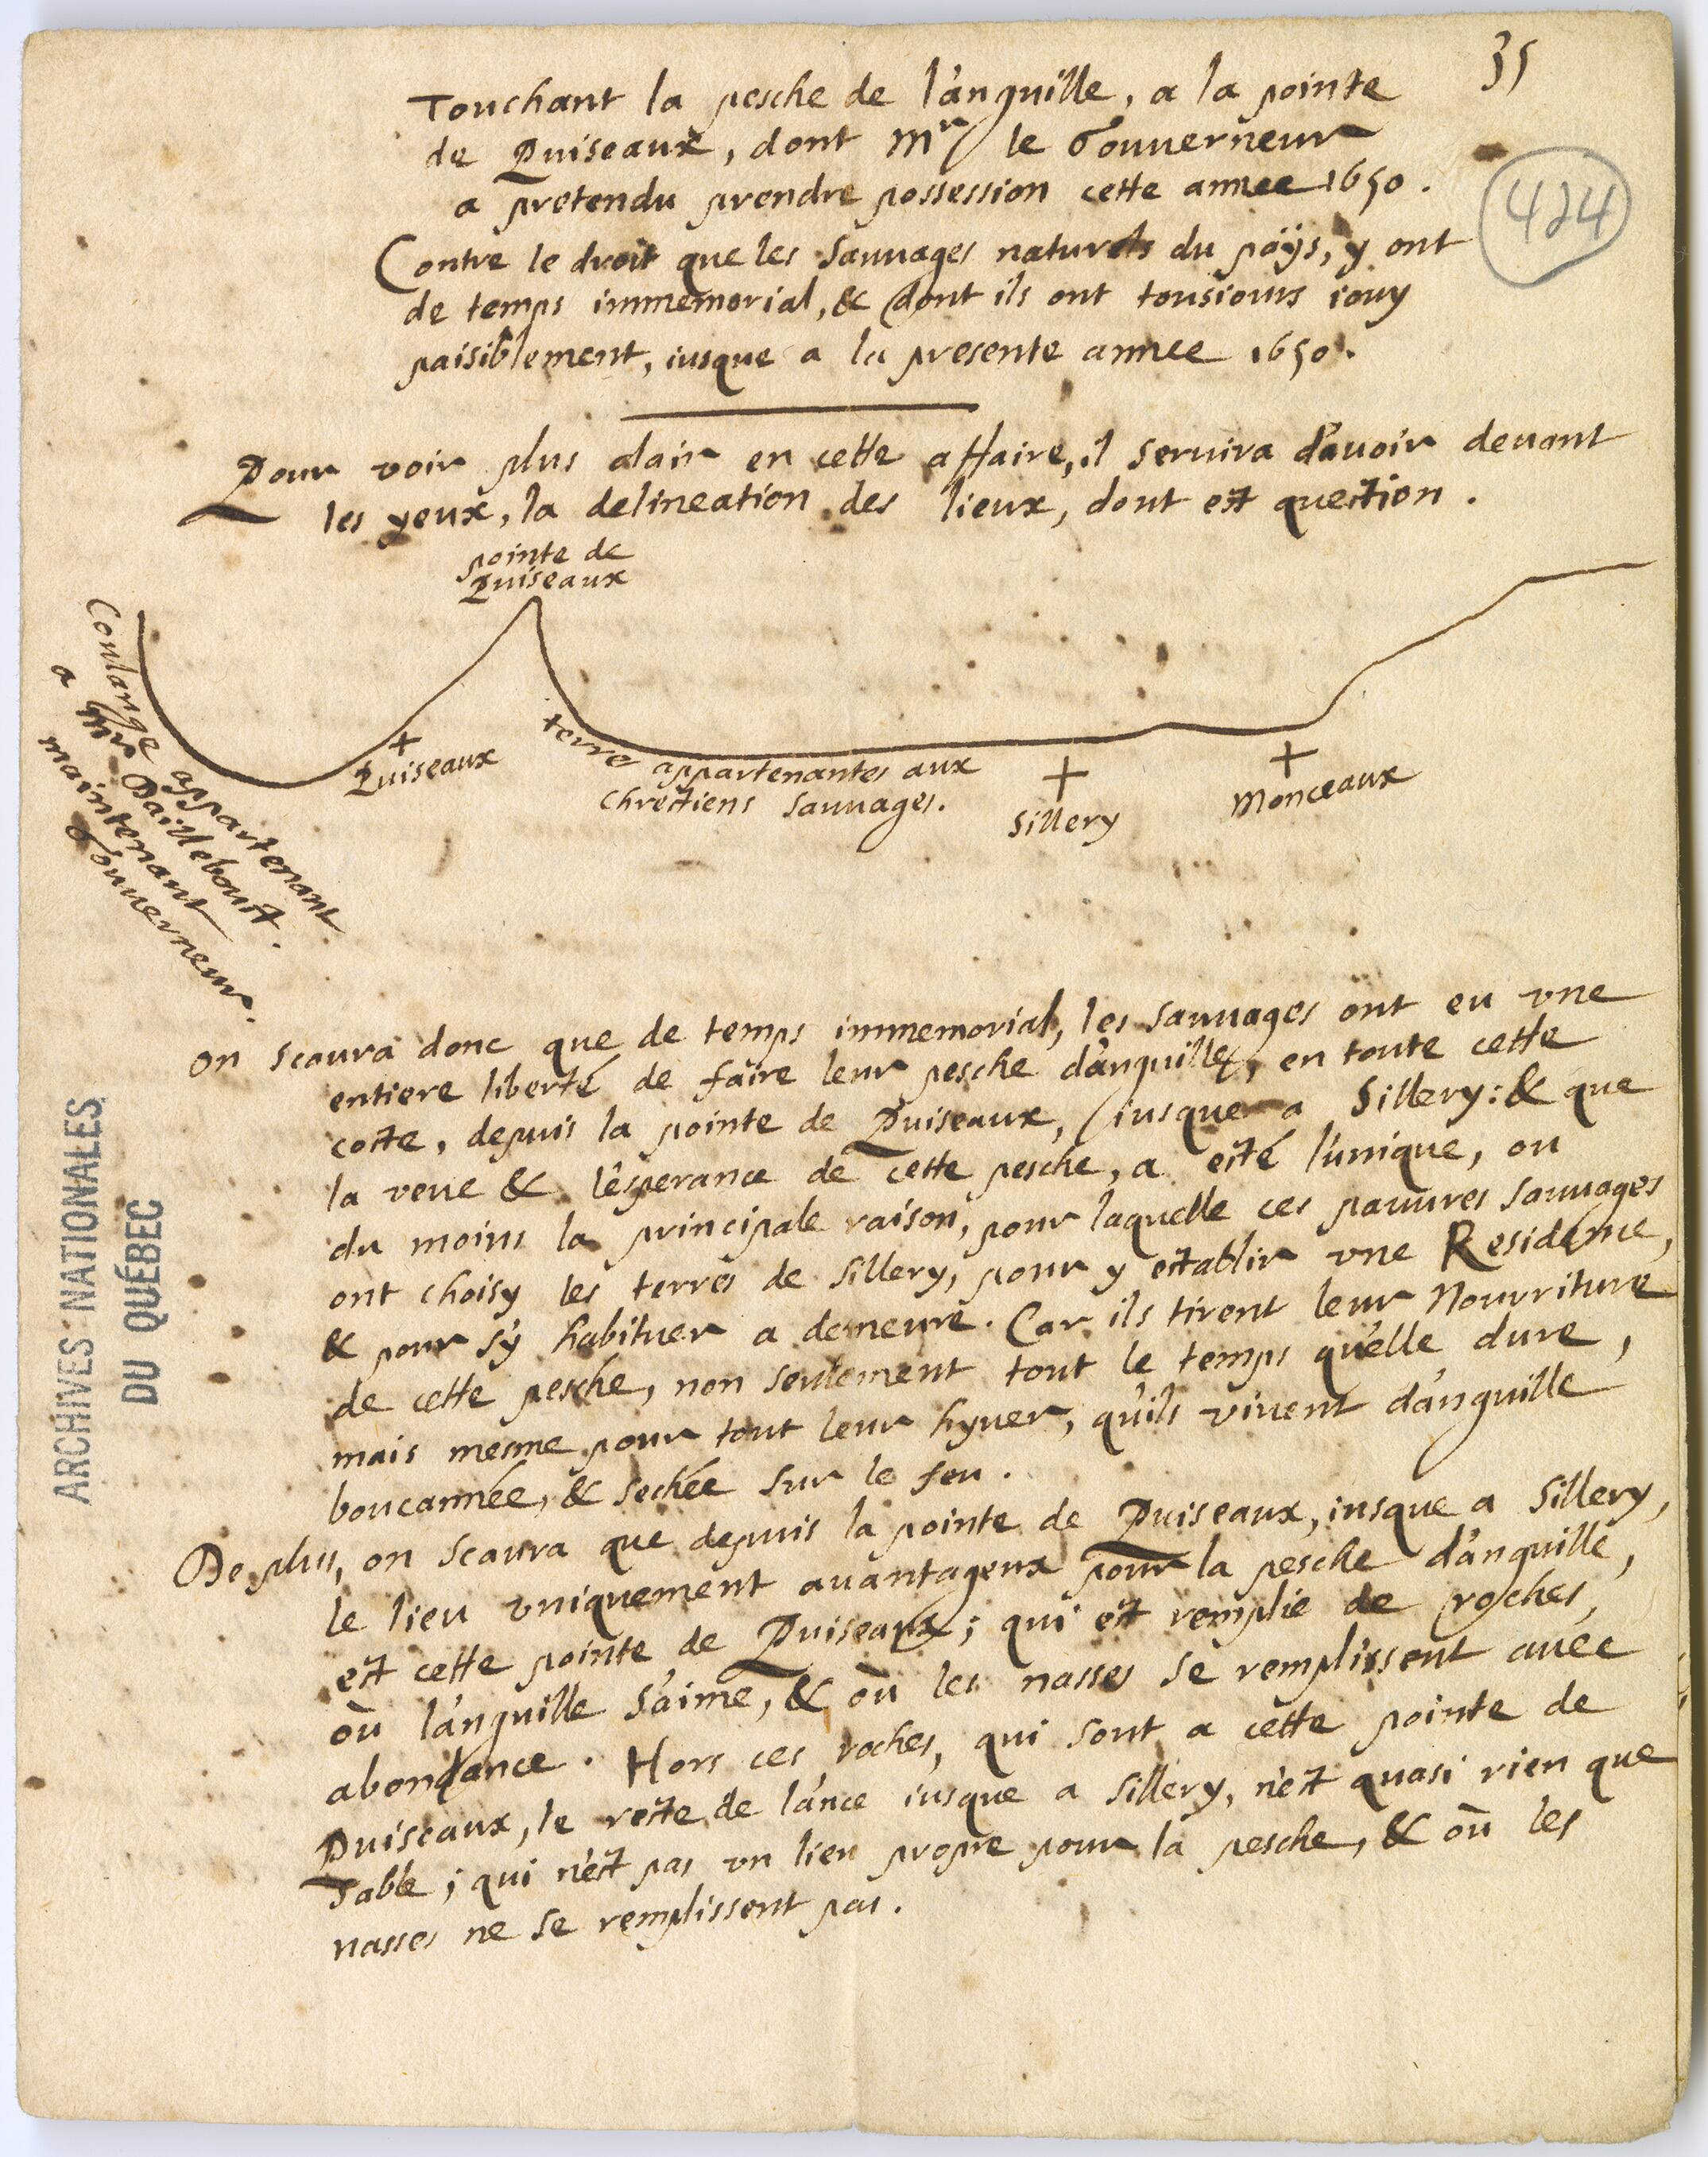 35
Touchant la pesche de l'anguille, a la pointe
de Puiseaux, dont Mr le Gouuerneur
a pretendu prendre possession cette annee 1650.
Contre le droit que les Sauuages naturels du päys, y ont
de temps immemorial, & dont ils ont tousiours iouy
paisiblement, iusque a la presente annee 1650.
424
Pour voir plus clair en cette affaire, il seruira d'auoir deuant
les yeux, la delineation des lieux, dont est question.
pointe de
Puiseaux
Coulange appartenant
a Mr Dailleboust.
maintenant
Gouuerneur.
Puiseaux
terres appartenantes aux
Chrestiens Sauuages.
Sillery
Monceaux
On scaura donc que de temps immemorial, les Sauuages ont eu vne
entiere liberté de faire leur pesche d'anguille, en toute cette
coste, depuis la pointe de Puiseaux, iusque a Sillery: & que
la veue & l'esperance de cette pesche, a esté l'unique, ou
du moins la principale raison, pour laquelle ces pauures Sauuages
ont choisy les terres de Sillery, pour y establir vne Residence,
& pour s'y habituer a demeure. Car ils tirent leur Nourriture
de cette pesche, non seulement tout le temps qu'elle dure,
mais mesme pour tout leur hyuer, qu'ils viuent d'anguille
boucannée, & sechée sur le feu.
De plus, on scaura que depuis la pointe de Puiseaux, iusque a Sillery,
le lieu vniquement auantageux pour la pesche d'anguille,
est cette pointe de Puiseaux; qui est remplie de roches,
où l'anguille s'aime, & où les nasses se remplissent auec
abondance. Hors ces roches, qui sont a cette pointe de
Puiseaux, le reste de l'ance iusque a Sillery, n'est quasi rien que
sable; qui n'est pas vn lieu propre pour la pesche, & où les
nasses ne se remplissent pas.
ARCHIVES NATIONALES
DU QUÉBEC